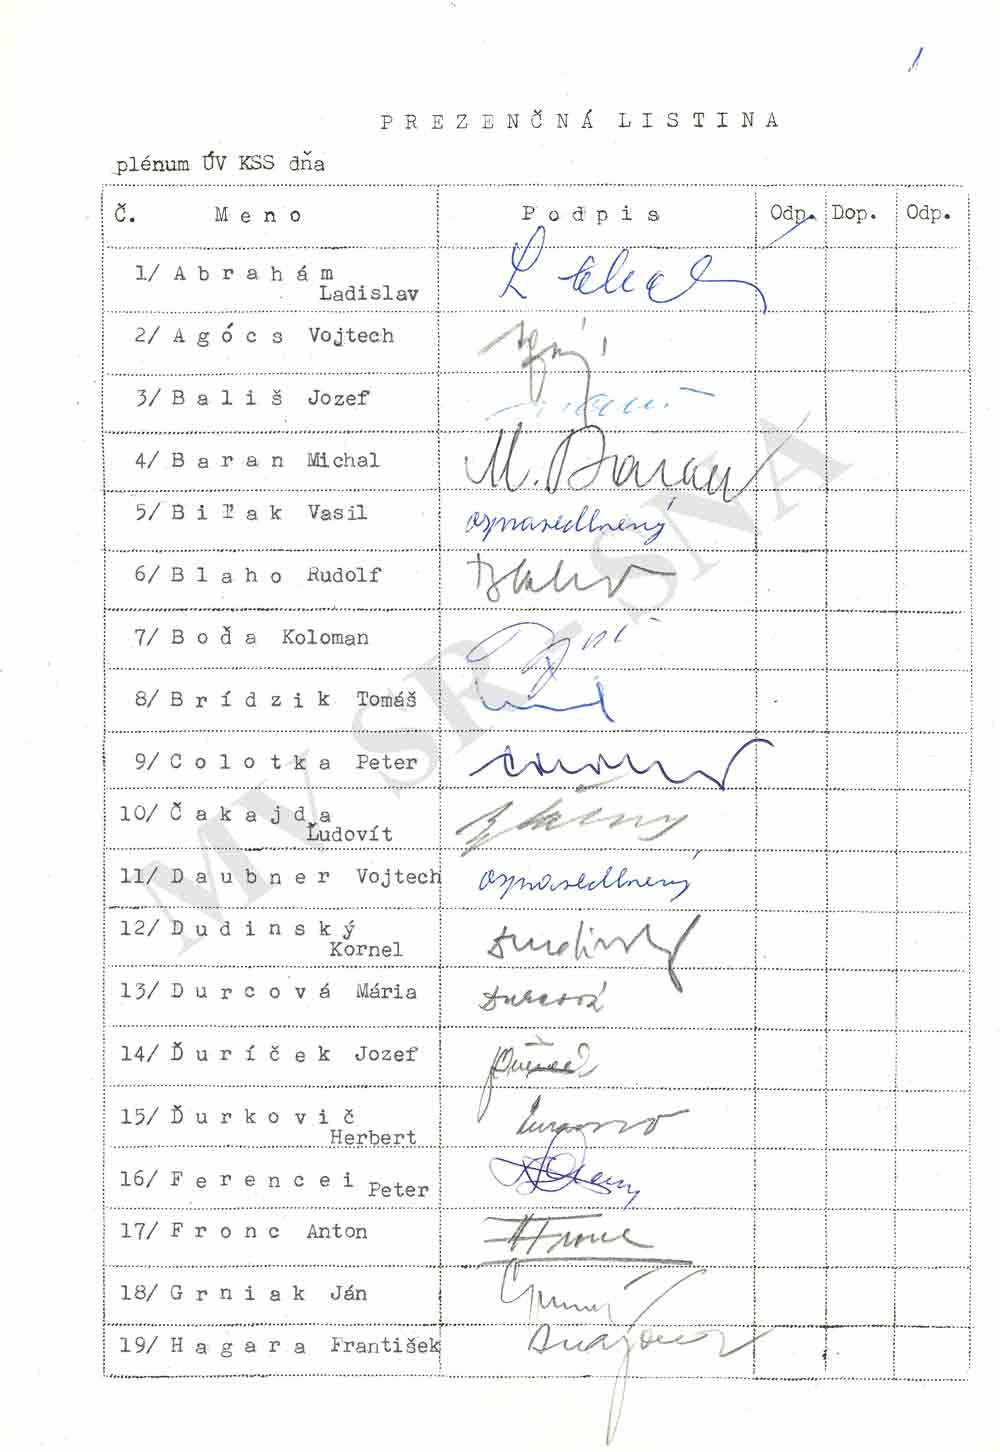 1
PREZENČNÁ LISTINA
plénum ÚV KSS dňa
Č. Meno Podpis Odp. Dop. Odp.
1/ Abrahám
Ladislav
2/ Agócs Vojtech
3/ Bališ Jozef
4/ Baran Michal M. Baran
5/ Biľak Vasil ospravedlnený
6/ Blaho Rudolf Blaho
7/ Boďa Koloman
8/ Brídzik Tomáš
9/ Colotka Peter
10/ Čakajda
Ľudovít
11/ Daubner Vojtech ospravedlnený
12/ Dudinský Dudinský
Kornel
13/ Durcová Mária Durcová
14/ Ďuríček Jozef
15/ Ďurkovič
Herbert
16/ Ferencei Peter
17/ Fronc Anton A Fronc
18/ Grniak Ján
19/ Hagara František
MV SR - SNA